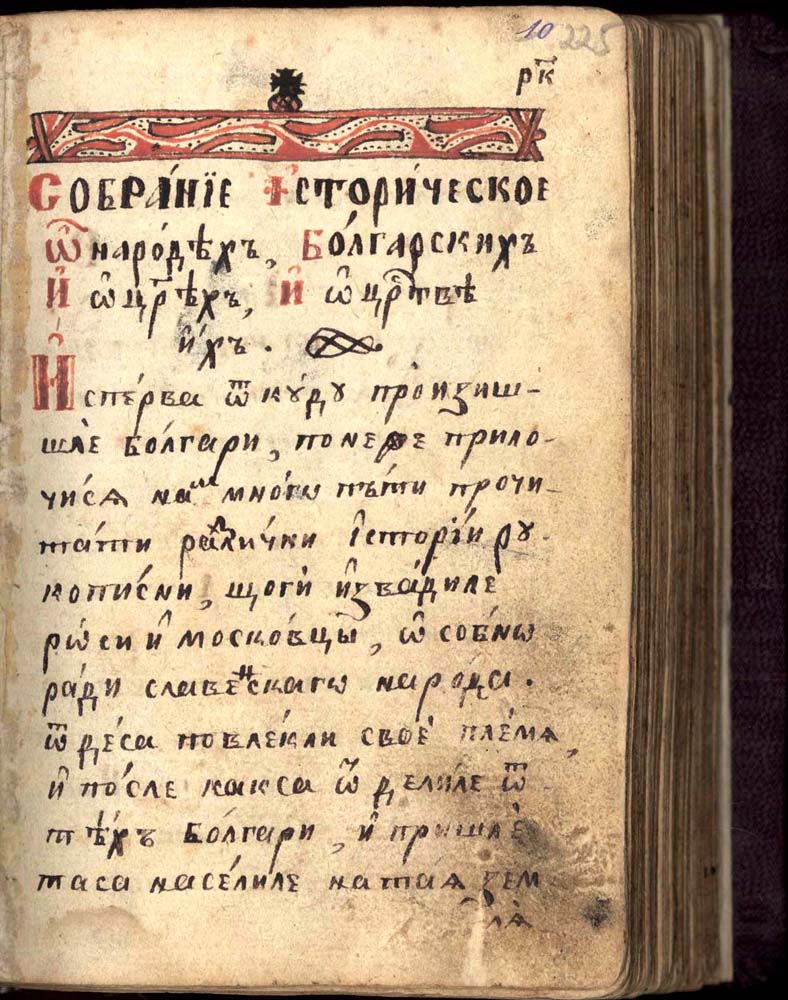 10 225
рк҃
Собра́нїе їстори́ческое
ѡ҆ наро́дѣхъ, Бо́лгарскихъ
И҆ ѡ҆ цр҃ѣхъ, и҆ ѡ҆ цр҃твѣ
и́хъ.
И҆спе́рва ѿ кꙋ́дꙋ про́изиш-
шле бо́лгари, поне прило-
чисѧ на мно́гѡ пъ́ти прочи-
та́ти разли́чки і҆сторі́и рꙋ-
копи́сни, щоги̇̀ и҆зва́диле
рѡ́си и҆ моско́вцы, ѡ҆собнѡ
ра́ди славенскагѡ наро́да.
ѿ де́са повле́кли своѐ пле́мѧ,
и҆ по́сле какса ѿделиле ѿ-
тѣ́хъ бо́лгари, и҆ пришлѐ
таса насе́лиле на таѧ зем
лѧ